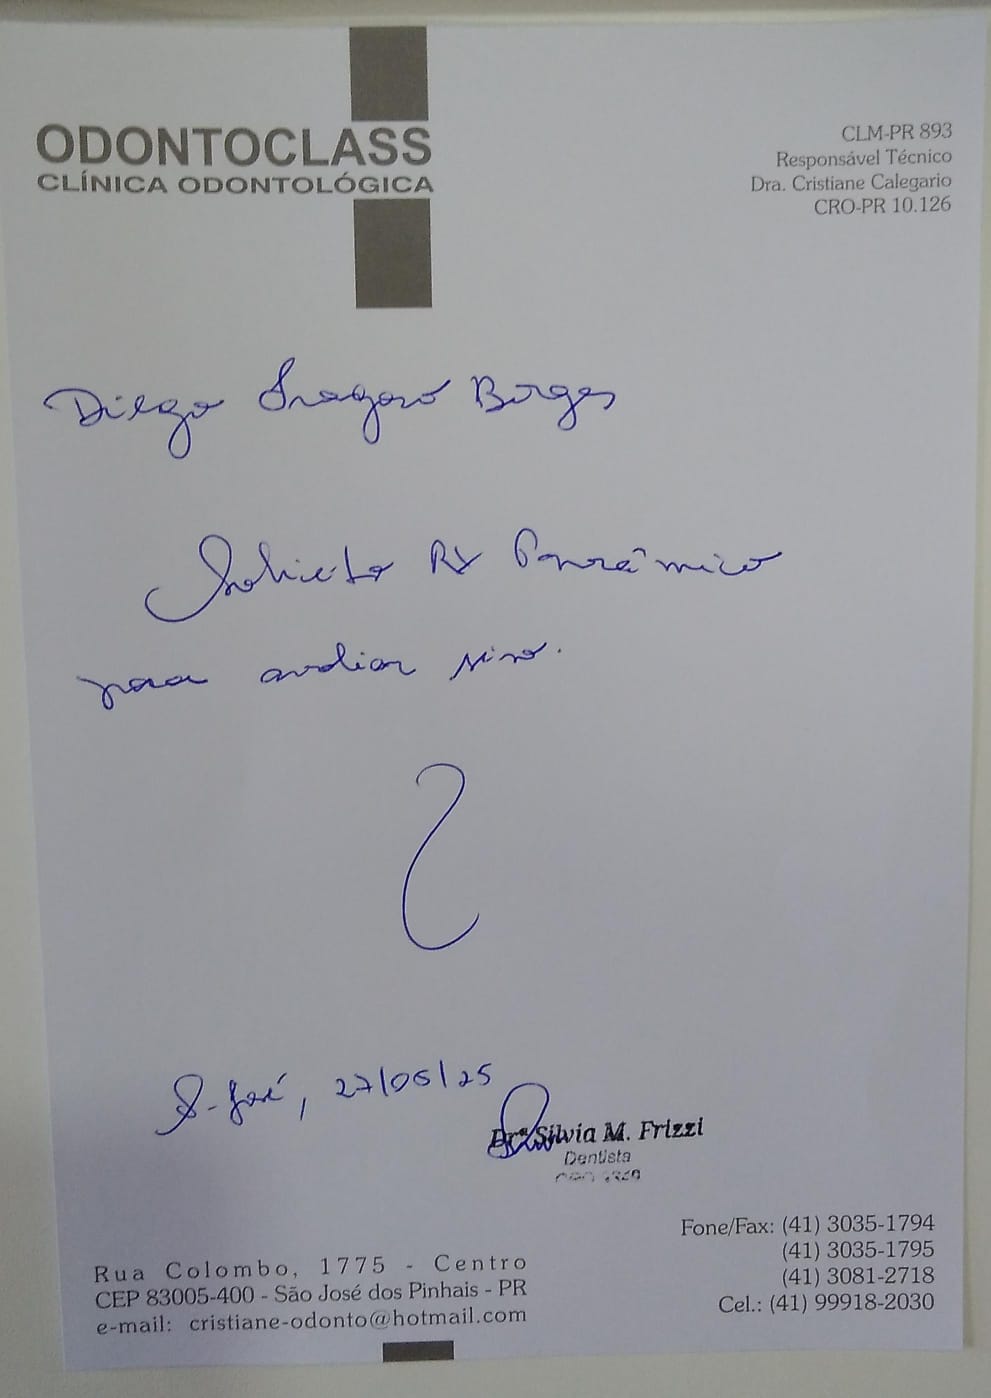 ODONTOCLASS
CLÍNICA ODONTOLÓGICA
CLM-PR 893
Responsável Técnico
Dra. Cristiane Calegario
CRO-PR 10.126
Diego Borges
Solicito RX Panorâmico
para avaliar siso.
S. José, 27/05/25
Drª Silvia M. Frizzi
Dentista
Fone/Fax: (41) 3035-1794
(41) 3035-1795
(41) 3081-2718
Cel.: (41) 99918-2030
Rua Colombo, 1775 - Centro
CEP 83005-400 - São José dos Pinhais - PR
e-mail: cristiane-odonto@hotmail.com